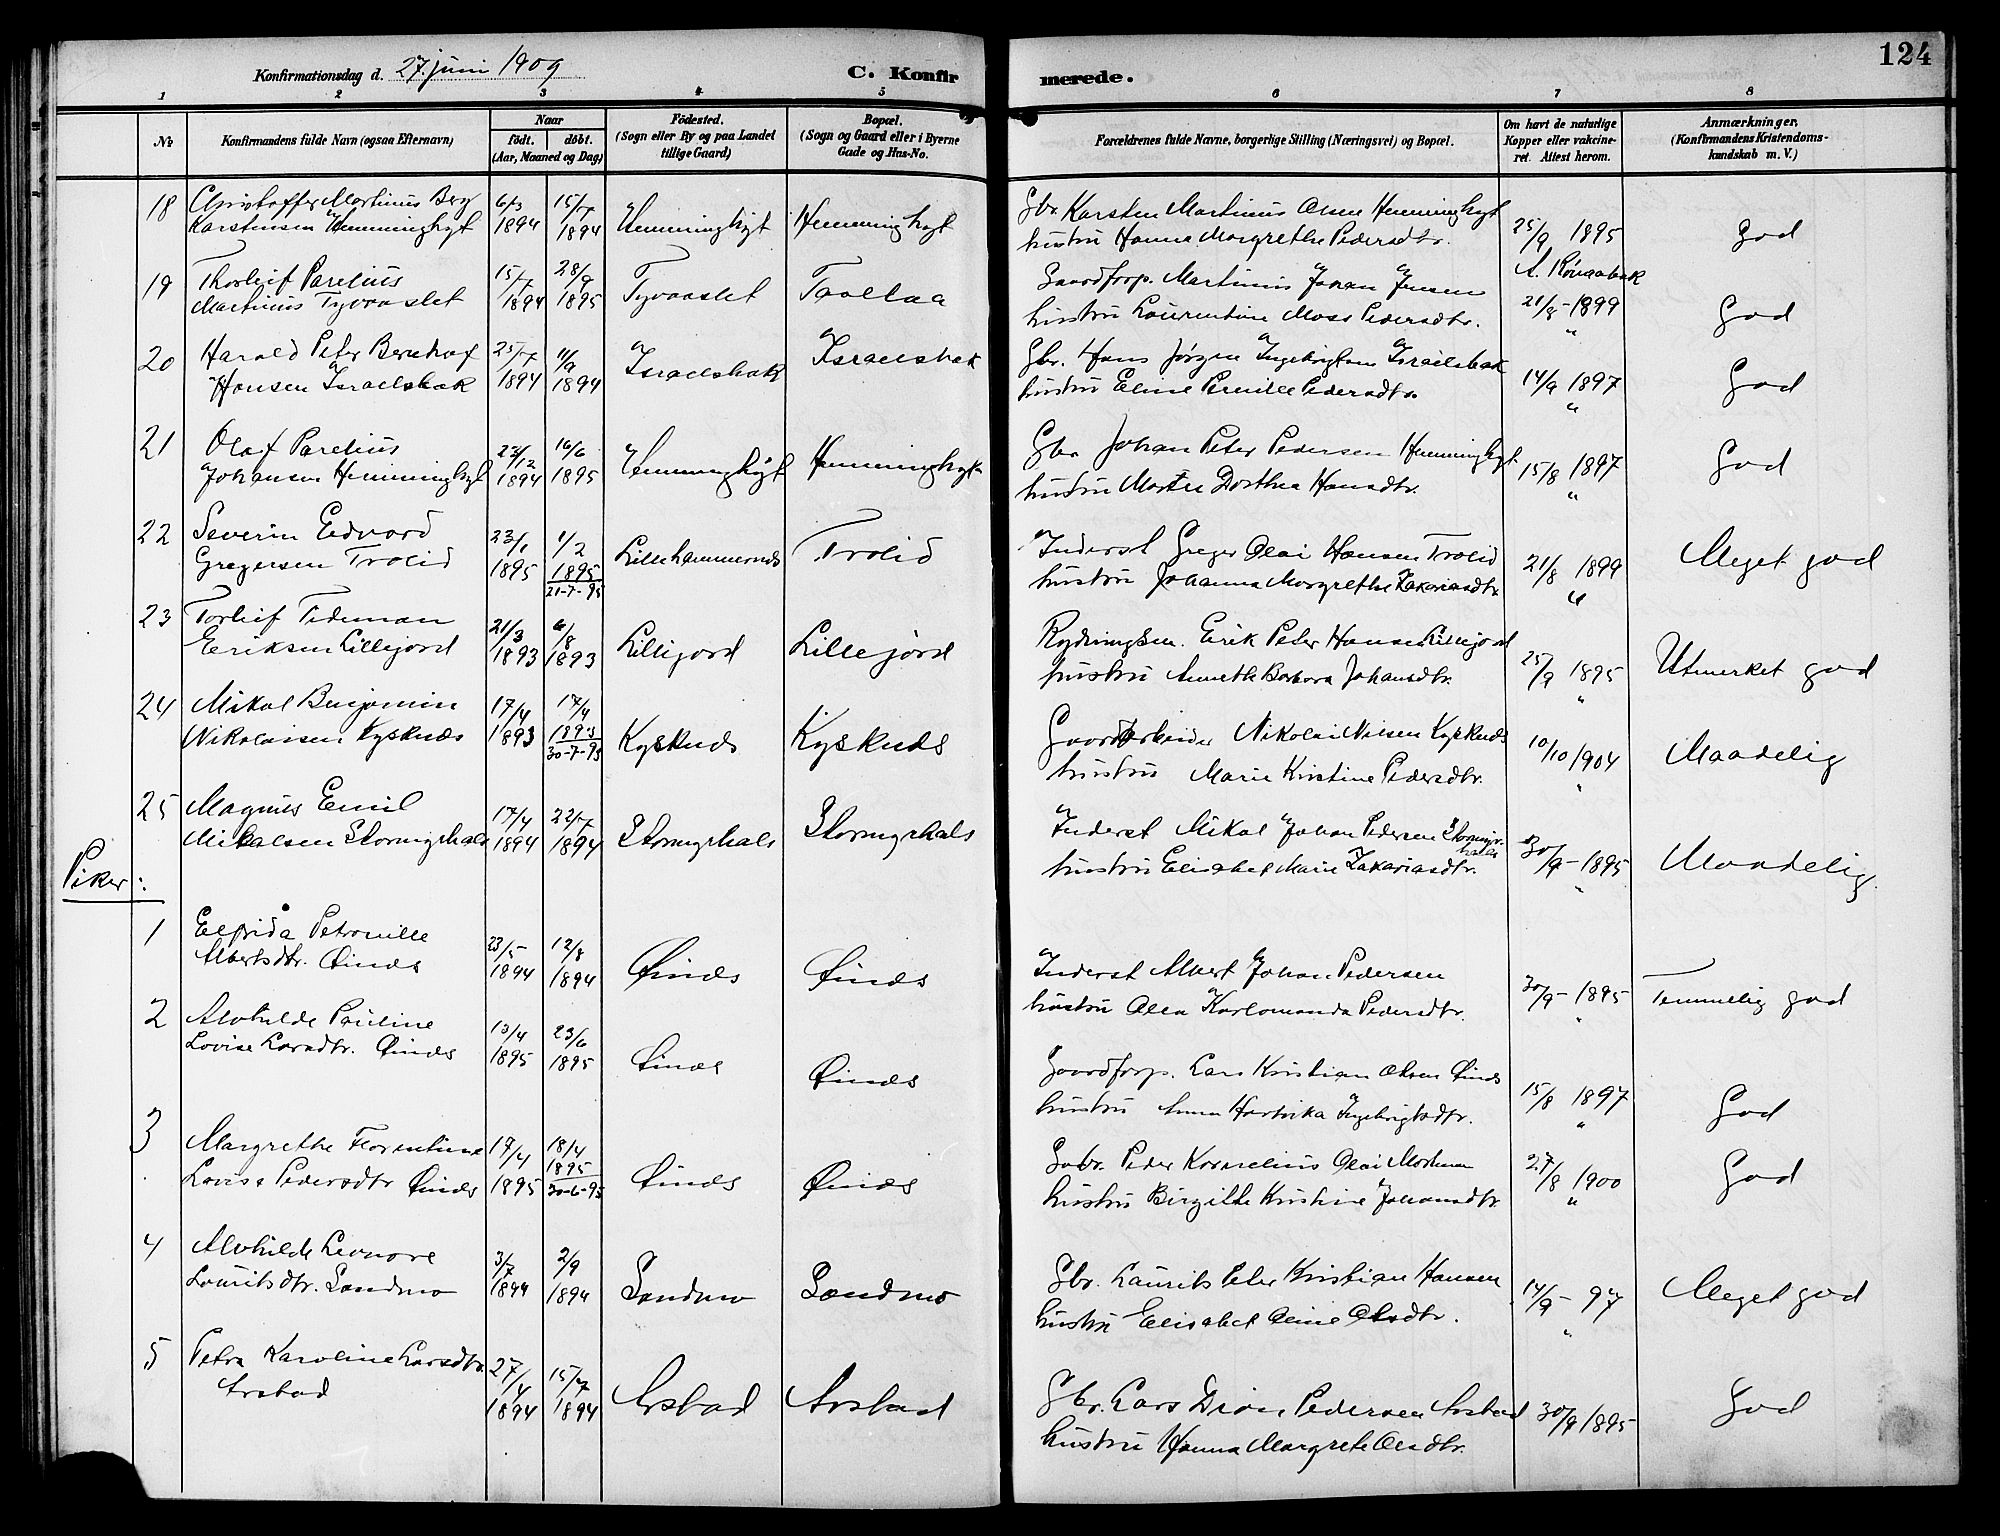 124
Konfirmationsdag d. 27. juni 1909
C. Konfir
merede.
1 2 3 4 5 6 7 8
No
Konfirmandens fulde Navn (ogsaa Efternavn)
Naar
født. døbt.
(Aar, Maaned og Dag)
Fødested.
(Sogn eller By og paa Landet
tillige Gaard)
Bopæl.
(Sogn og Gaard eller i Byerne
Gade og Hus-No.
Forældrenes fulde Navne, borgerlige Stilling (Næringsvei) og Bopæl.
Om havt de naturlige
Kopper eller vakcine-
ret. Attest herom.
Anmærkninger,
(Konfirmandens Kristendoms-
kundskab m. V.)
18 Christoffer Martinus Berg 15/7 Hemminghyt Hemminghyt Gbr. Karsten Martinus Olsen Hemminghyt 25/9 1895 God
Karstensen Hemminghyt 1894 1894 hustru Hanna Margrethe Pedersdtr.
19 Thorleif Parelius 15/7 28/9 Tyvaaslet Gaardforp. Martinus Johan Jensen
Martinus Tyvaaslet 1894 1895 hustru Laurentine Moss Pedersdtr. 21/8-1899 God
20 Harald Peter Bernhof 25/7 11/9 Israelsbak Israelsbak Gbr. Hans Jørgen Ingebrigtsen Israelsbak 14/9 1897 God
Hansen Israelsbak 1894 1894 hustru Eline Pernille Pedersdtr. "
21 Olaf Parelius 23/12 16/6 Hemminghyt Hemminghyt Gbr Johan Peter Pedersen Hemminghyt 15/8 1897 God
Johansen Hemminghyt 1894 1895 hustru Dorthea Hansdtr. "
22 Severin Edvard 23/1 1/2 Trolid Inderst Greger Olai Hansen Trolid 21/8 1899 Meget god
Gregersen Trolid 1895 1895 hustru Johanna Margrethe Zakariasdtr. "
21-7-95
23 Torleif Tideman 21/3 6/8 Lillejord Lillejord Rydningsm. Erik Peter Hansen Lillejord 25/9 1895 Utmerket god
Eriksen Lillejord 1893 1893 hustru Anneth Barbara Johansdtr. "
24 Mikal Benjamin 17/4 17/4 Kysknes Kysknes Gaardarbeider Nikolai Nilsen Kysknes 10/10 1904 Maadelig
Nikolaisen Kysknes 1893 1893 hustru Marie Kristine Pedersdtr. "
30-7-93
25 Magnus Emil 17/4 22/7 Stormyrhals Stormyrhals Inderst Mikal Johan Pedersen Stormyr-
hals
Mikalsen Stormyrhals 1894 1894 hustru Elisabet Marie Zakariasdtr. 30/9-1895 Maadelig.
Piker:
1 Elfrida Petronille 23/5 12/8 Øines Øines Inderst Albert Johan Pedersen 30/9-1895 Temmelig god
Albertsdtr. Øines 1894 1894 hustru Olea Karlomanda Pedersdtr. "
2 Alvhilde Pauline 13/4 23/6 Øines Øines Gaardforp. Lars Kristian Olsen Øines 15/8 1897 God
Lovise Larsdtr. Øines 1895 1895 hustru Anna Hartvika Ingebrigtsdtr. "
3 Margrethe Florentine 17/4 18/4 Øines Øines Gbr. Peder Kornelius Olai 27/8 1900 God
Lovise Pedersdtr Øines 1895 1895 hustru Birgitte Kristine Johansdtr. "
30-6-95
4 Alvhilde Leonore 3/7 2/9 Sandmo Sandmo Gbr. Laurits Peter Kristian Hansen 14/9-97 Meget god
Lauritsdtr. Sandmo 1894 1894 hustru Elisabet Oline Olsdtr. "
5 Petra Karoline Larsdtr. 27/4 15/7 Arsbad Arsbad Gbr. Lars Pedersen Arsbad 30/9 1895 God
Arsbad 1894 1894 hustru Hanna Margrete Olsdtr.